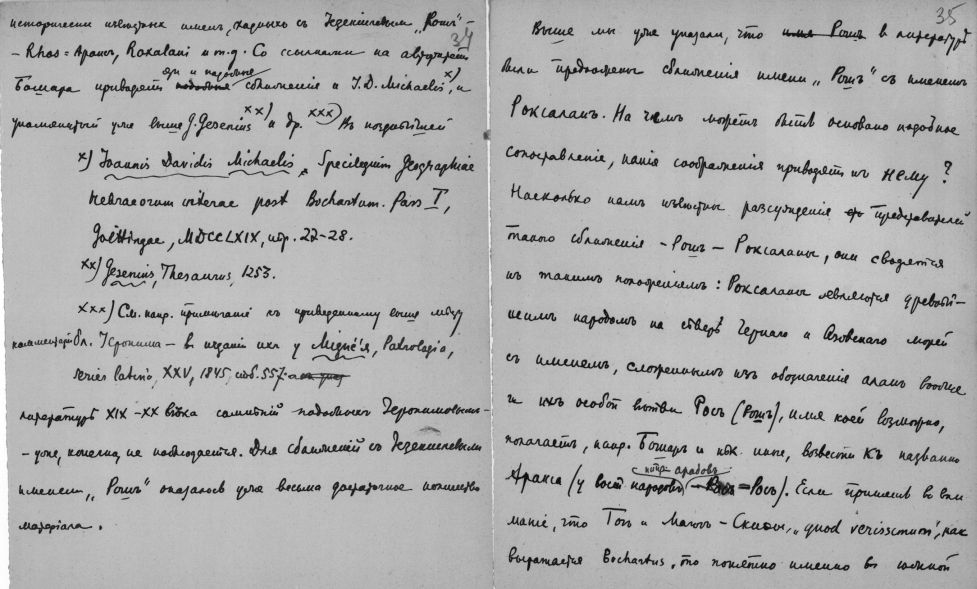 34
исторически извѣстныхъ именъ, сходныхъ съ Іезекіилевымъ „Рошъ“ –
– Rhos = Араксъ, Roxalani и т.д. Со ссылками на авторитетъ
эти и подобныя
Бошара приводятъ подобныя сближенія и I.D. Michaelis x), и
упомянутый уже выше J. Gesenius xx) и др. xxx) Въ позднѣйшей
x) Joannis Davidis Michaelis, Spicilegium Geographiae
Hebraeorum exterae post Bochartum. Pars I,
Goettingae, MDCCLXIX, стр. 22-28.
xx) Gesenius, Thesaurus, 1253.
xxx) См. напр. примѣчаніе къ приведенному выше мѣсту
комментарій бл. Іеронима – въ изданіи ихъ у Migne'я, Patrologia,
series latina, XXV, 1845, стб. 557.
литературѣ XIX–XX вѣка сомнѣній подобныхъ Іеронимовымъ –
– уже, конечно, не наблюдается. Для сближеній съ Іезекіилевымъ
именемъ „Рошъ“ оказалось уже весьма достаточное количество
матеріала.
35
Выше мы уже указали, что имя Рошъ въ литературѣ
были предложены сближенія имени „Рошъ“ съ именемъ
Роксаланъ. На чемъ можетъ быть основано подобное
сопоставленіе, какія соображенія приводятъ къ нему?
Насколько намъ извѣстны разсужденія представителей
такого сближенія – Рошъ – Роксаланы, они сводятся
къ такимъ положеніямъ: Роксаланы являются древнѣй–
шимъ народомъ на сѣверѣ Чернаго и Азовскаго морей
съ именемъ, сложеннымъ изъ обозначенія аланъ вообще
и ихъ особой вѣтви Росъ (Рошъ), имя коей возможно,
полагаетъ, напр. Бошаръ и нѣк. иные, возвести къ названію
напр. арабовъ
Аракса (у вост. народовъ – Росъ = Росъ). Если принять во вни
маніе, что Гогъ и Магогъ – Скиѳы, „quod verissimum“, какъ
выражается Bochartus, то понятно именно въ южной